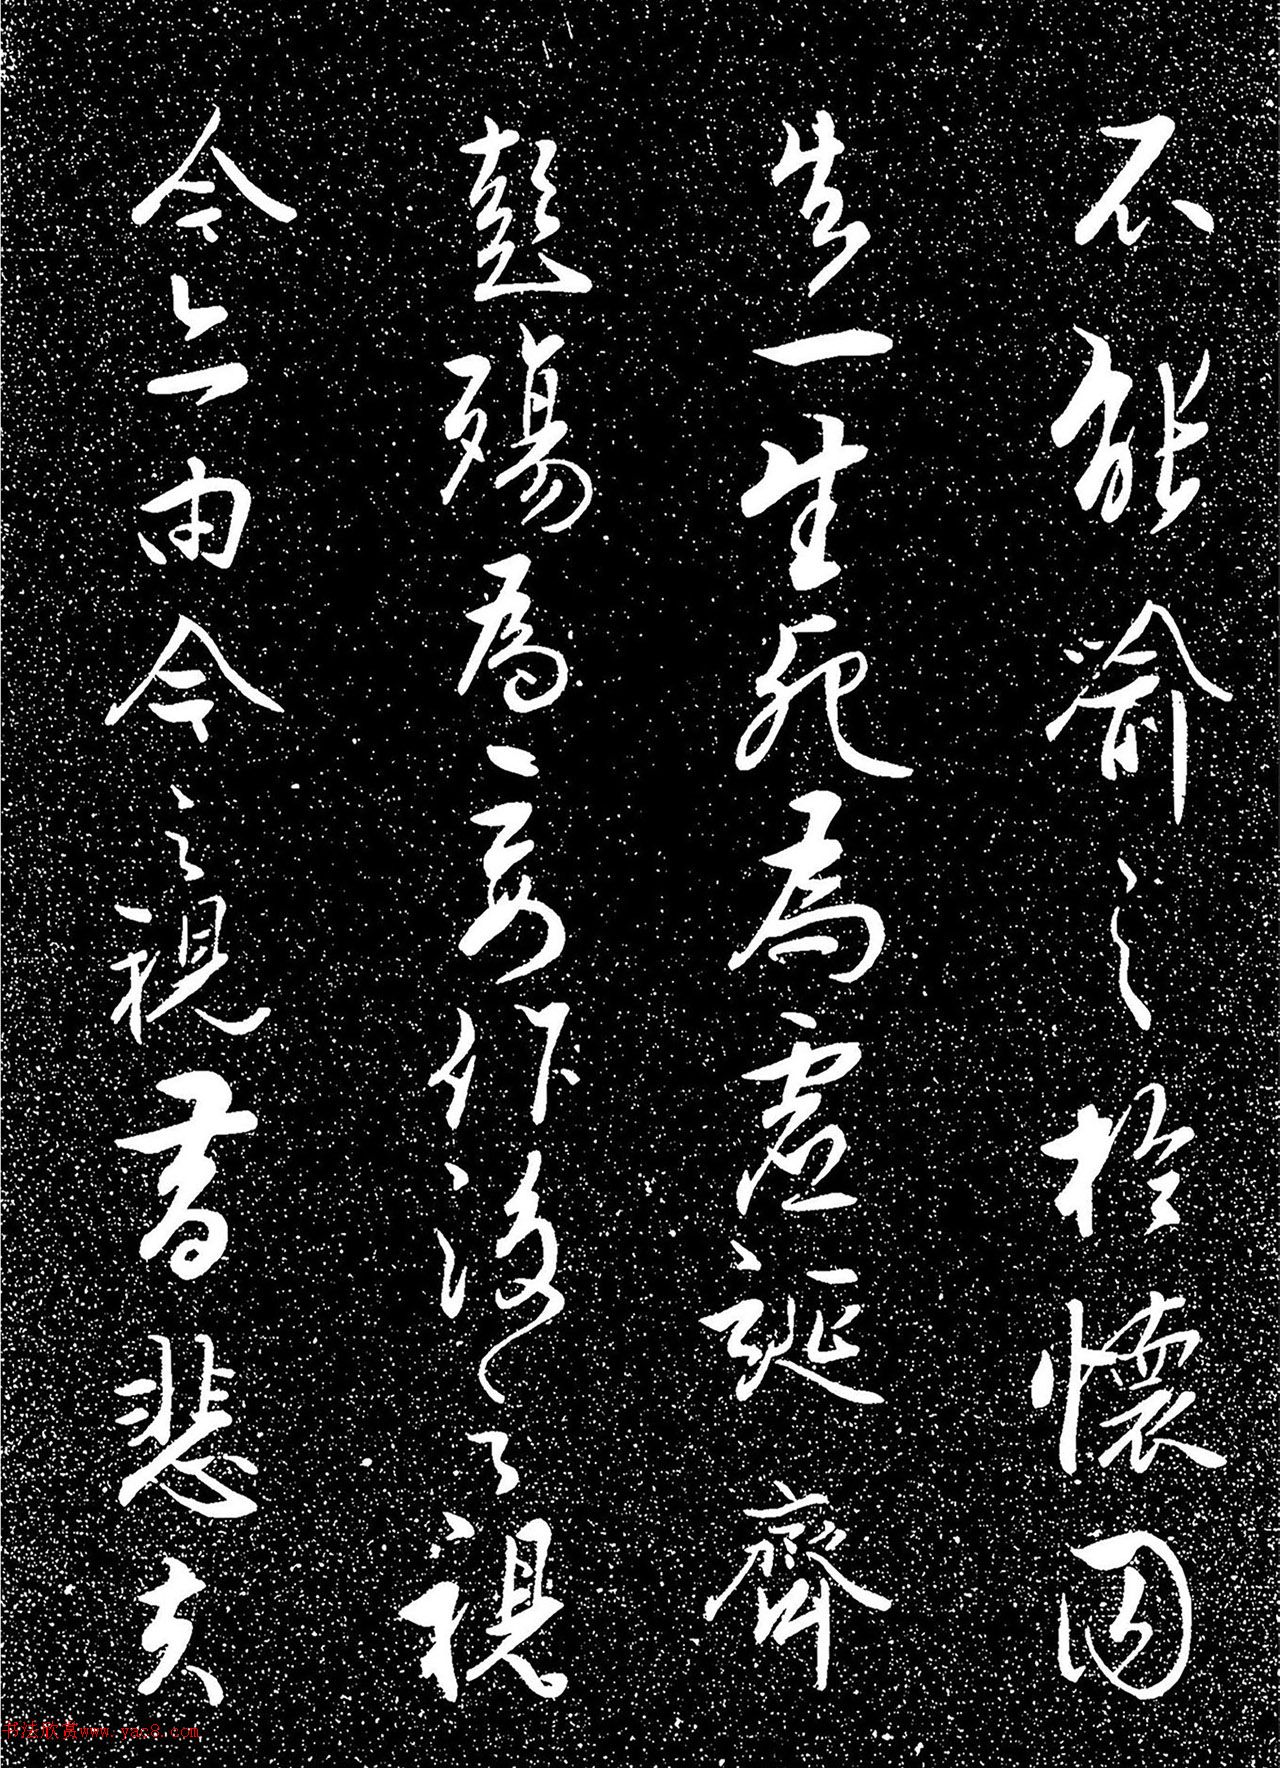 不能喻之於懷固
知一生死為虛誕齊
彭殤為妄作後之視
今亦由今之視昔悲夫
书法欣赏www.yac8.com